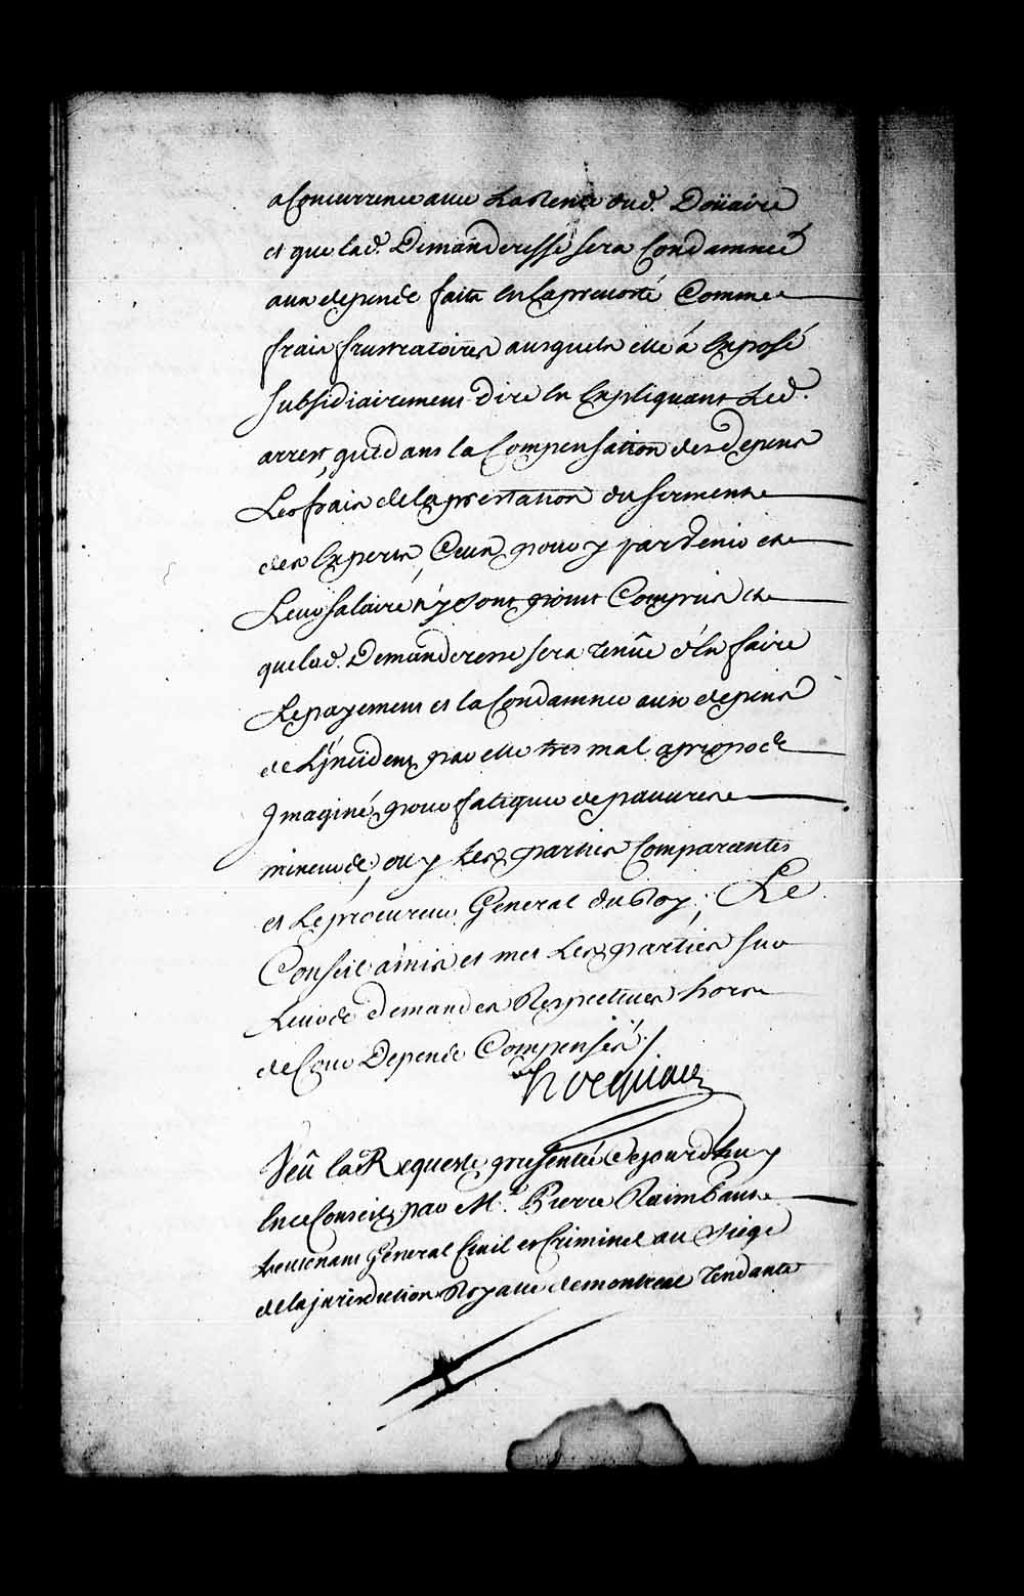 a Concurrence avec La Rente dud. Doüaire
et que lad. Demanderesse sera Condamneé
aux depends faits en la prevosté Comme
frais frustratoires ausquels elle á Exposé
subsidiairement dire en Expliquant Led.
arrest, que dans la Compensation des depens
Les frais de la prestation du serment
des Experts, Ceux pour y parvenir et
Leur salaire n'y sont point Compris et
que lad. Demanderesse sera tenüe d'En faire
Le payement et la Condamner aux depens
de L'jncident par elle tres mal a propos
Jmaginé pour fatiguer de pauvres
mineurs, ouy Les parties Comparantes
et Le procureur General du Roy; Le
Conseil a mis et met Les parties sur
Leurs demandes Respectives hors
de Cour Depends Compensés./.
hocquart
Veû la Requeste presentée Cejourdhuy
En ce Conseil par Me. Pierre Raimbault
Lieutenant General Civil et Criminel au siege
de la jurisdiction Royalle de montreal Tendante